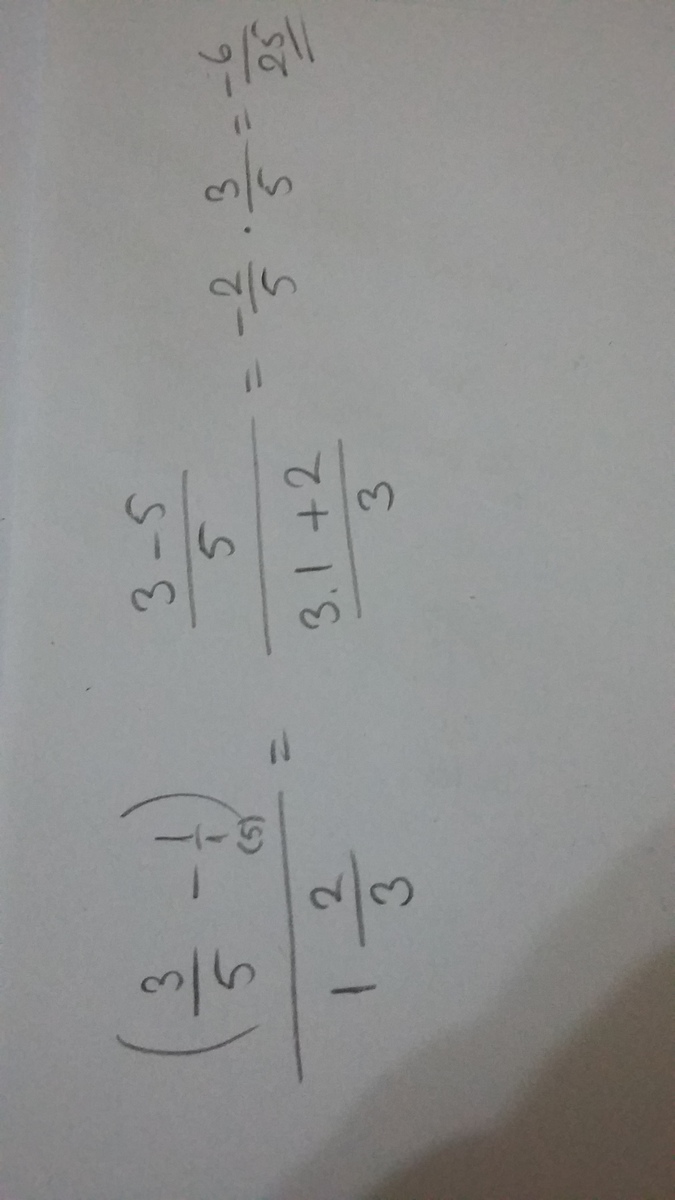 (3/5 - 1/1 (5)) / (1 2/3) = ((3-5)/5) / ((3.1+2)/3) = -2/5 . 3/5 = -6/25